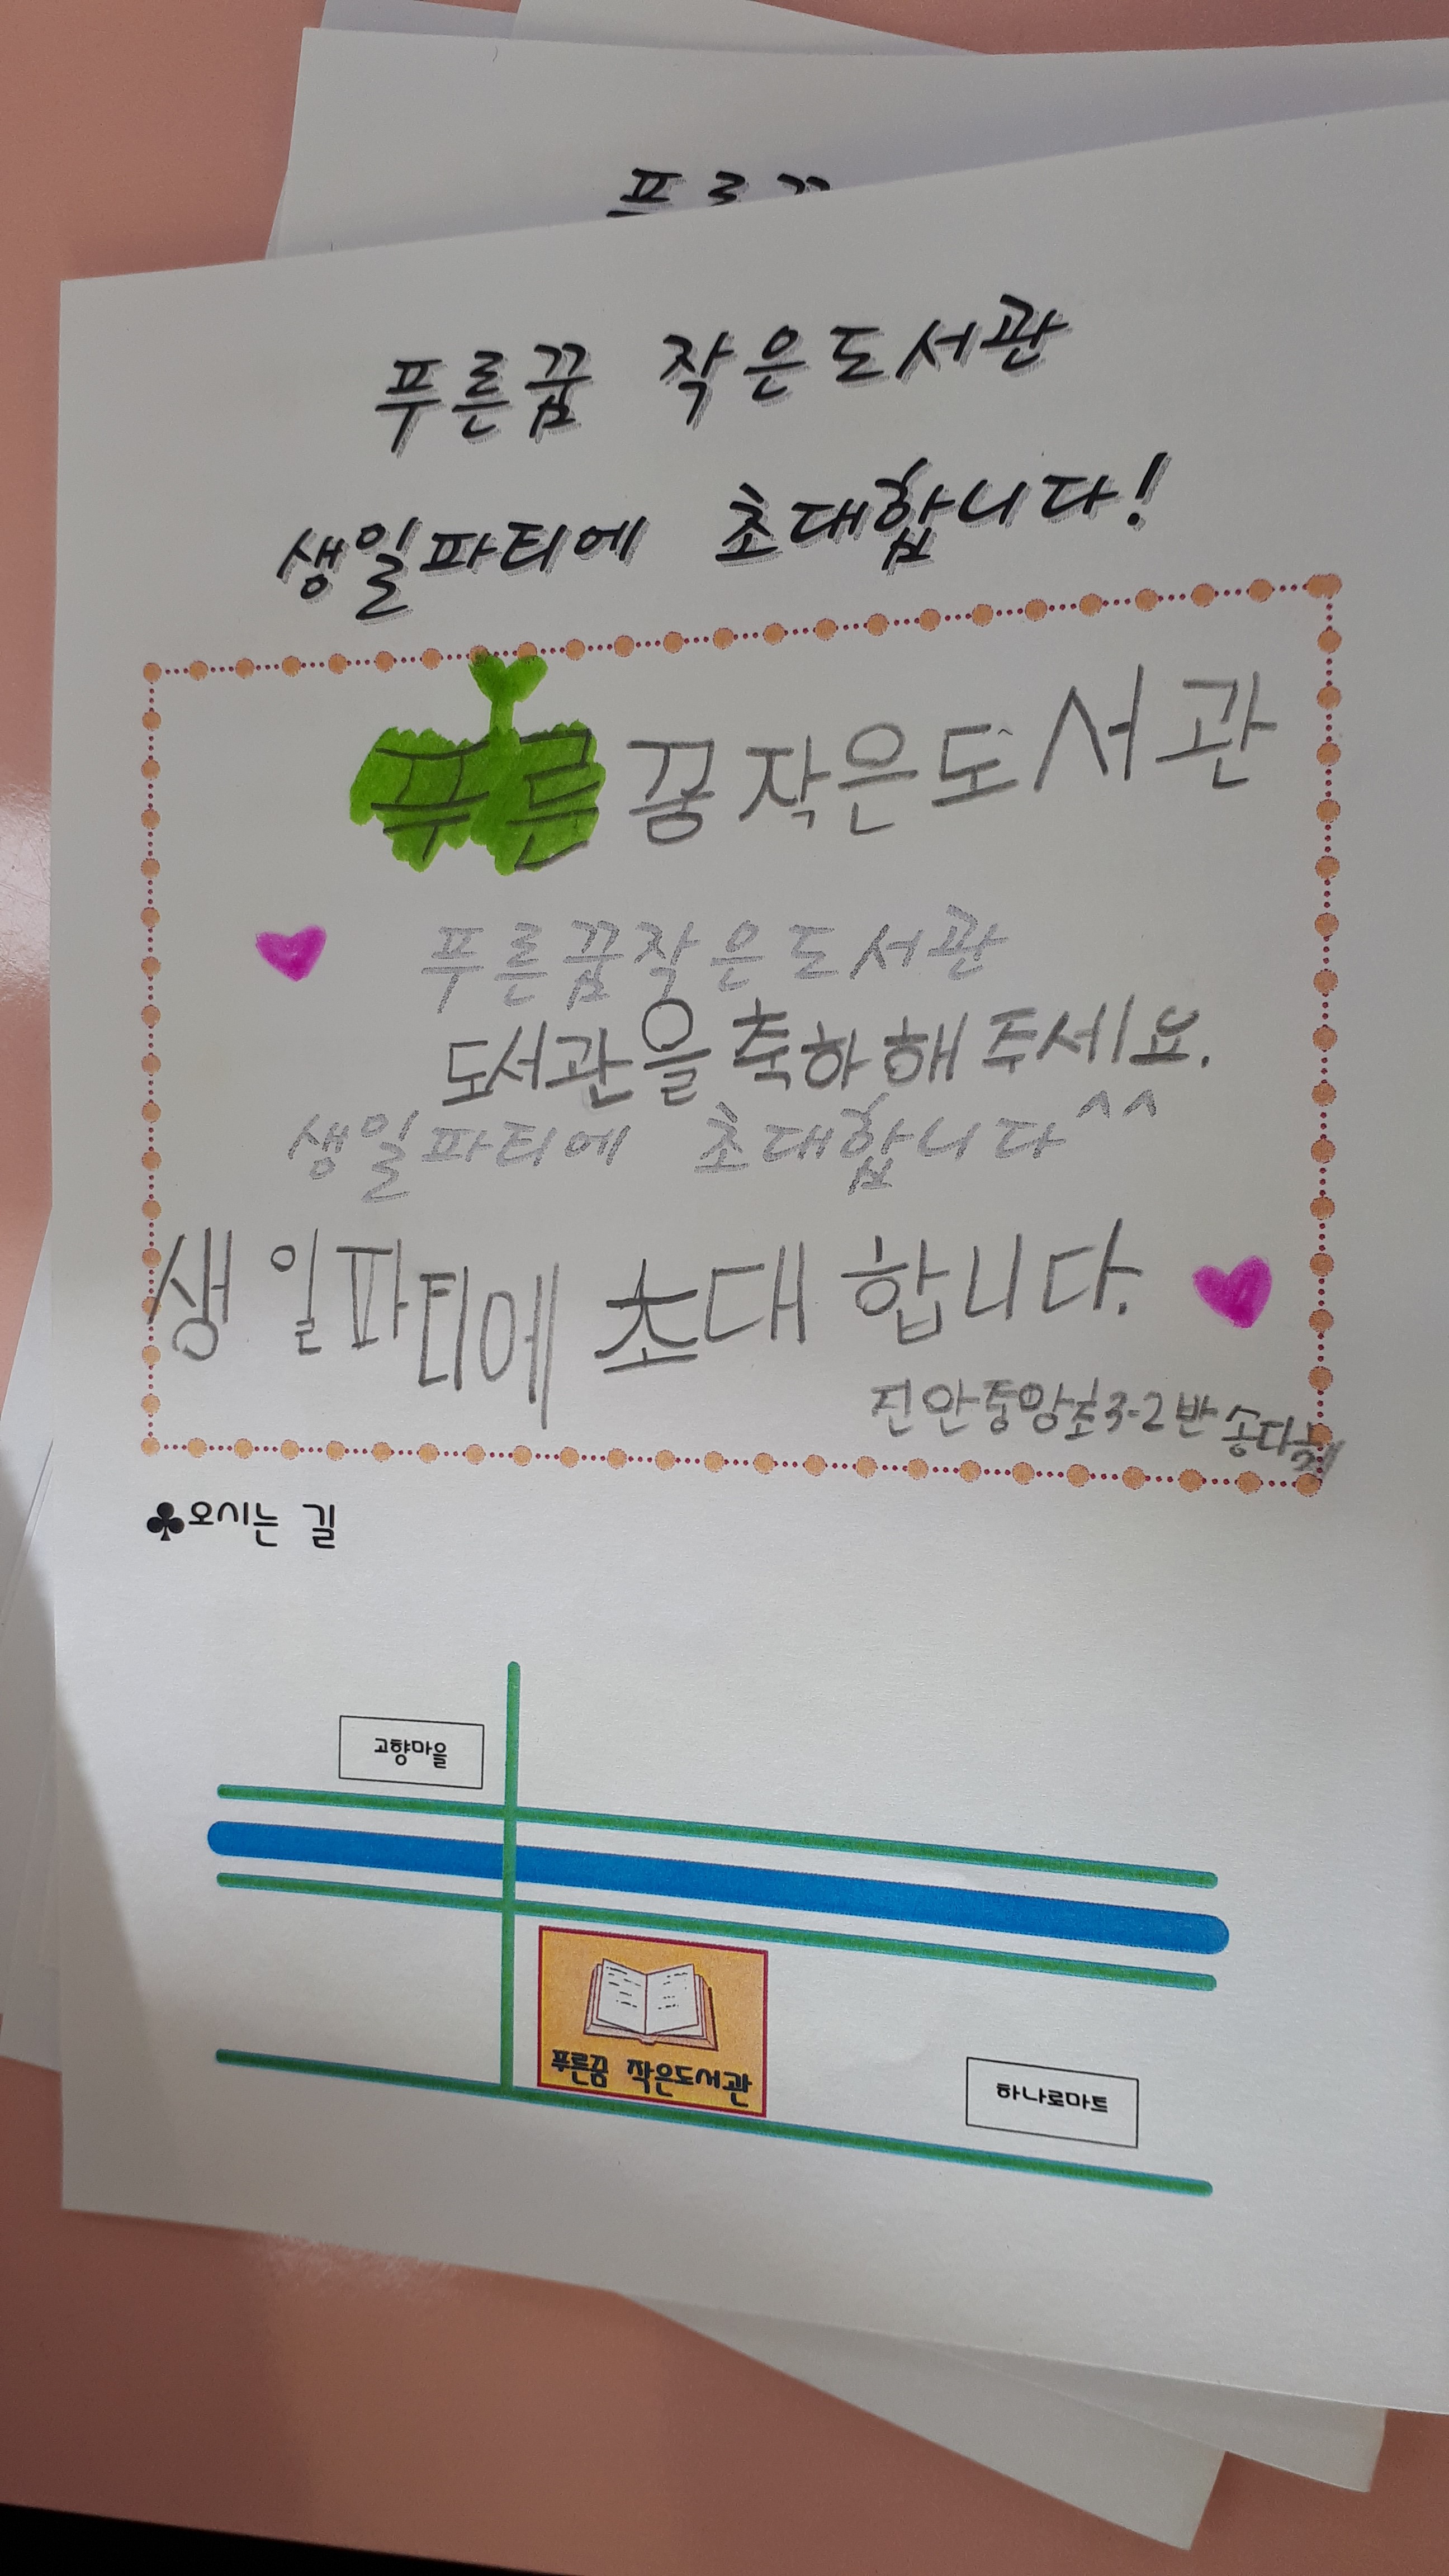 푸른꿈 작은도서관
생일파티에 초대합니다!
푸른꿈작은도서관
푸른꿈작은도서관
도서관을 축하해주세요.
생일파티에 초대합니다^^
생일파티에 초대합니다.
진안중앙초3-2반 송다
♣오시는 길
고향마을
푸른꿈 작은도서관
하나로마트